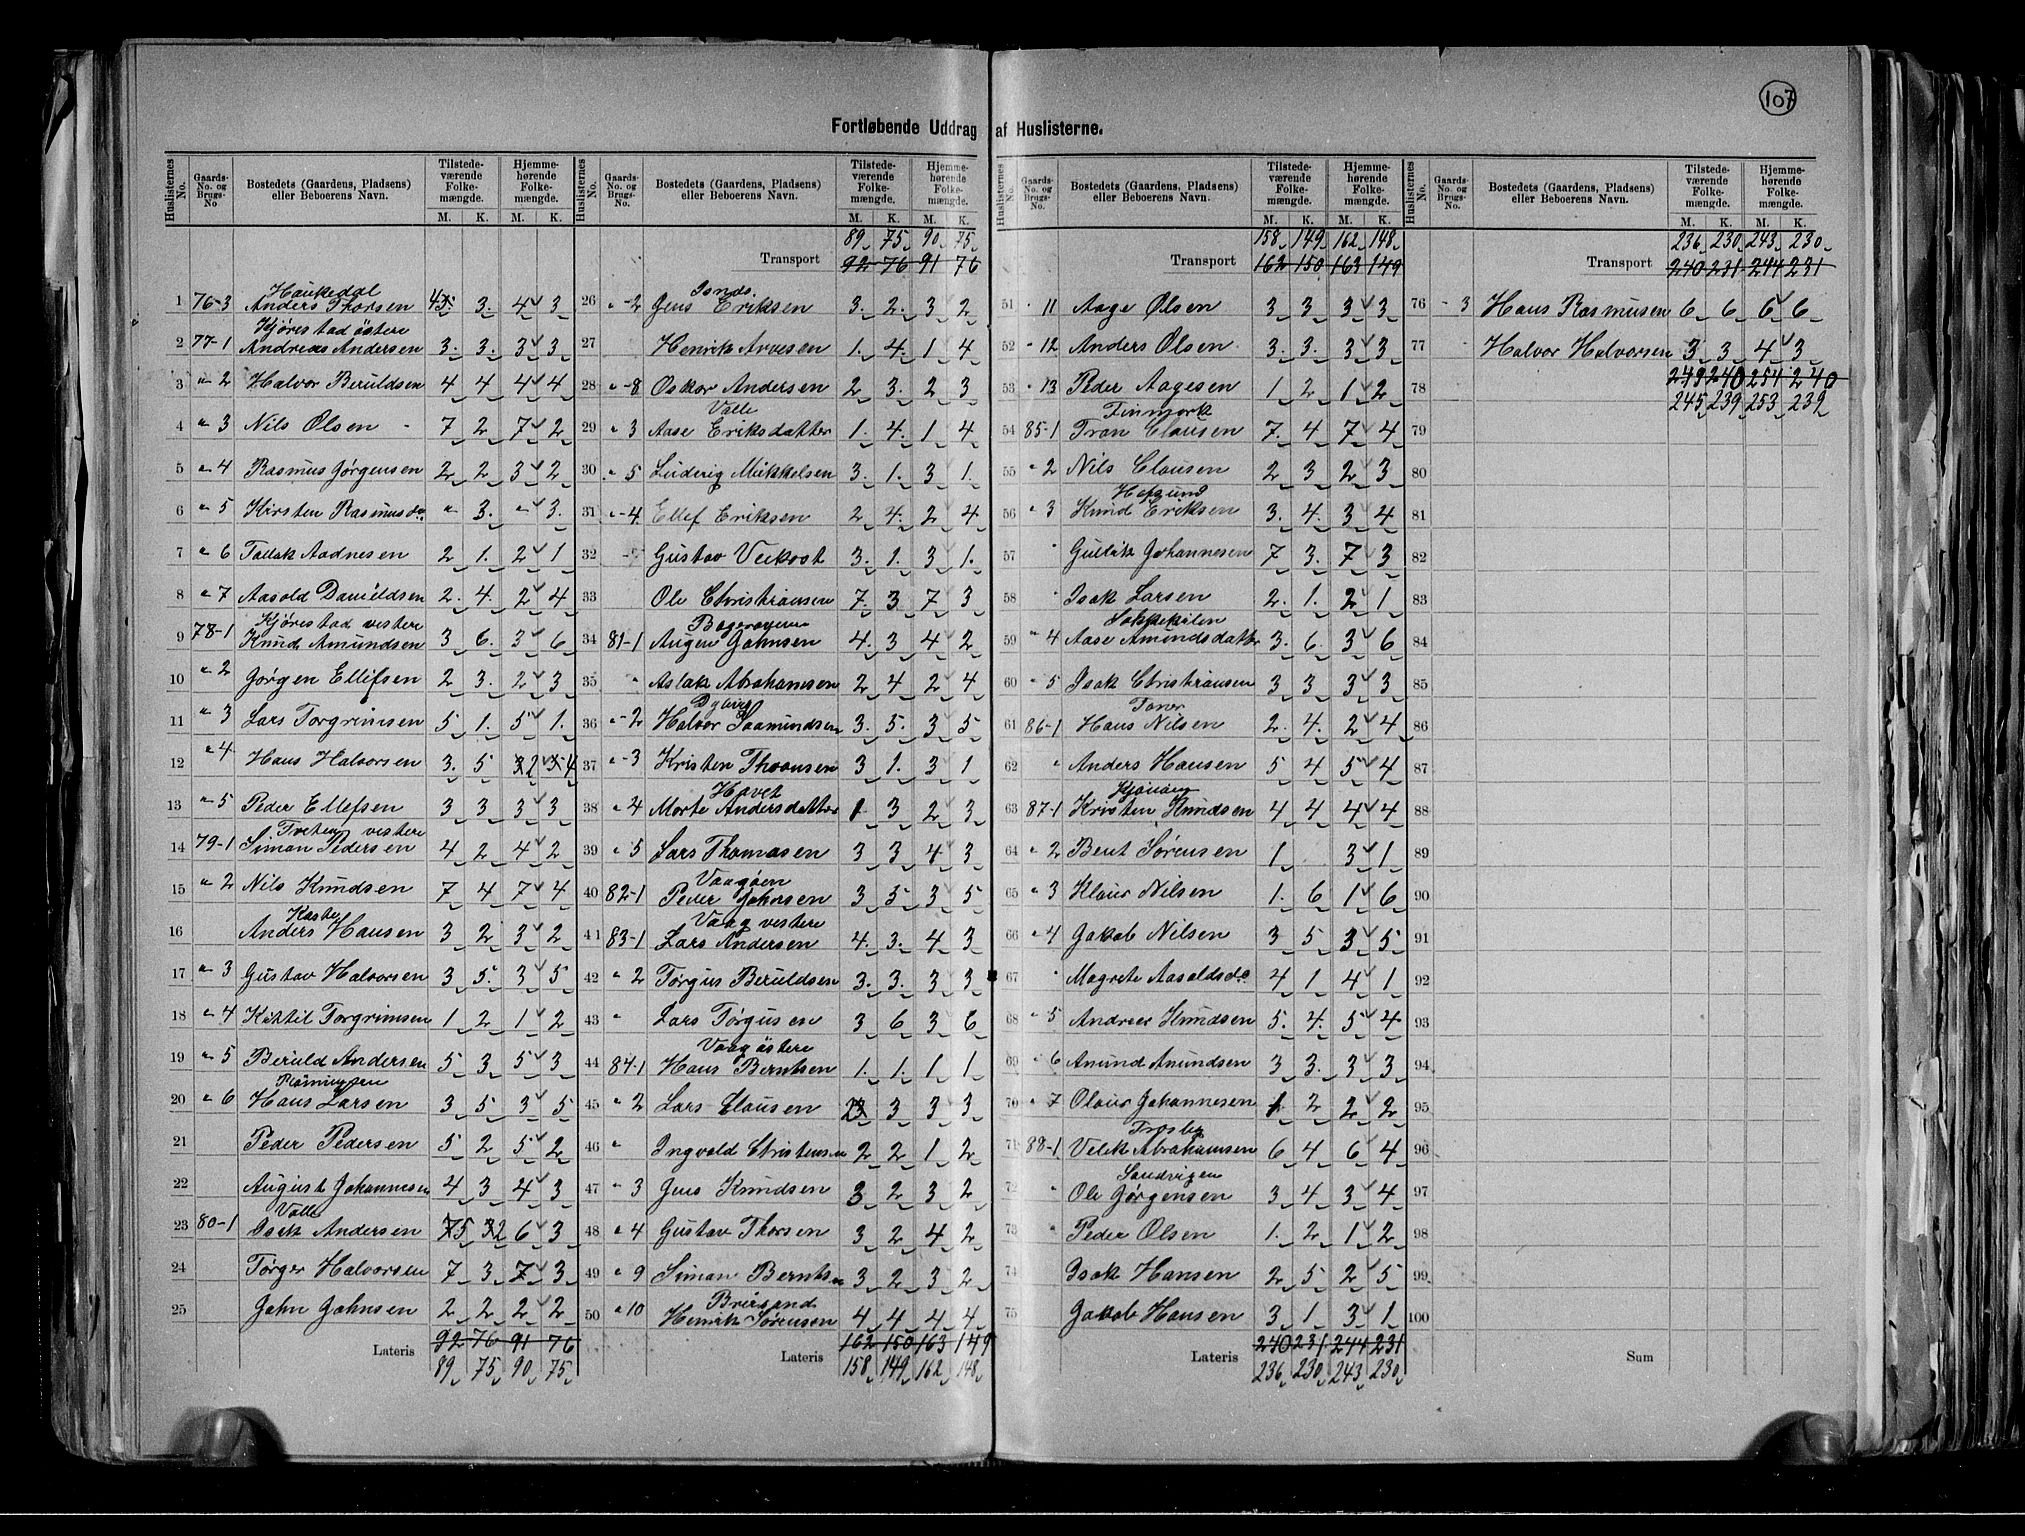 107
Fortløbende Uddrag af Huslisterne.
Huslisternes No. | Gaards-No. og Brugs-No | Bostedets (Gaardens, Pladsens) eller Beboerens Navn. | Tilstedeværende Folkemængde. M. K. | Hjemmehørende Folkemængde. M. K.
Haukedal
1 76-3 Anders Thorsen 4 3. 4 3
Kjørestad østere
2 77-1 Andreas Andersen 3. 3. 3 3
3 " 2 Halvor Beruldsen 4 4 4 4
4 " 3 Nils Olsen - 7 2 7 2
5 " 4 Rasmus Jørgensen 2 2 3 2
6 " 5 Kirsten Rasmusda. " 3. " 3.
7 " 6 Tallak Aadnesen 2 1. 2 1
8 " 7 Aasold Danieldsen 2. 4. 2 4
Kjørestad vestere
9 78-1 Knud Amundsen 3 6. 3 6
10 " 2 Jørgen Ellefsen 2 3. 2 3
11 " 3 Lars Torgrimsen 5 1. 5 1.
12 " 4 Hans Halvorsen 3. 5 2 4
13 " 5 Peder Ellefsen 3 3 3 3
Tveten vestere
14 79-1 Simon Pedersen 4 2 4 2
15 " 2 Nils Knudsen 7 4 7 4
Kaste
16 Anders Hansen 3 2 3 2
17 " 3 Gustav Halvorsen 3 5. 3 5
18 " 4 Kittil Torgrimsen 1 2 1 2
19 " 5 Beruld Andersen 5 3 5 3
20 " 6 Hans Larsen 3 5 3 5
21 Peder Pedersen 5 2 5 2
22 August Johannesen 4 3 4 3
Valle
23 80-1 Isak Andersen 5 2 6 3
24 Tørger Halvorsen 7 3 7 3
25 John Johnsen 2 2 2 2
92 76 91 76
Lateris 89 75 90 75
Huslisternes No. | Gaards-No. og Brugs-No. | Bostedets (Gaardens, Pladsens) eller Beboerens Navn. | Tilstedeværende Folkemængde. M. K. | Hjemmehørende Folkemængde. M. K.
89 75 90 75
Transport 92 76 91 76
26 " -2 Jens Eriksen 3. 2. 3 2
27 Henrik Arvesen 1. 4. 1 4
28 " -8 Oskar Andersen 2 3. 2 3
Valle
29 " 3 Aase Eriksdatter 1. 4. 1 4
30 " 5 Luderig Mikkelsen 3. 1. 3 1.
31 " -4 Ellef Eriksen 2 4. 2 4
32 Gustav Veikost 3. 1. 3 1.
33 Ole Christiansen 7. 3 7 3
34 81-1 Augen Johnsen 4. 3 4 2
35 " Aslak Abrahamsen 2 4 2 4
Dybvig
36 " -2 Halvor Saamundsen 3. 5. 3 5
37 " -3 Kristen Thomsen 3 1. 3 1
Havet
38 " 4 Marte Andersdatter 1 3 2 3
39 " 5 Lars Thomasen 3 3 4 3
Vaagøen
40 82-1 Peder Johnsen 3 5 3 5
Vaag vestere
41 83-1 Lars Andersen 4. 3. 4 3
42 " 2 Torgus Beruldsen 3. 3. 3 3
43 " Lars Torgusen 3 6 3 6
Vaag østere
44 84-1 Hans Berntsen 1. 1. 1 1
45 " 2 Lars Clausen 2 3 3 3
46 " Ingvald Christensen 2 2 1 2
47 " 3 Jens Knudsen 3 2 3 2
48 " 4 Gustav Thorsen 3 2 4 2
49 " 9 Simon Berntsen 3 2 3 2
50 " 10 Henrik Sørensen 4 4 4 4
162 150 163 149
Lateris 158 149 162 148
Huslisternes No. | Gaards-No. og Brugs-No. | Bostedets (Gaardens, Pladsens) eller Beboerens Navn. | Tilstedeværende Folkemængde. M. K. | Hjemmehørende Folkemængde. M. K.
158 149 162 148
Transport 162 150 163 149
51 " 11 Aage Olsen 3 3 3 3
52 " 12 Anders Olsen 3. 3. 3 3
53 " 13 Peder Aagesen 1 2 1 2
Finmark
54 85-1 Tran Clausen 7. 4 7 4
55 " 2 Nils Clausen 2 3 2 3
Høgund
56 " 3 Knud Eriksen 3. 4. 3 4
57 " Gullik Johannesen 7 3. 7 3
58 " Isak Larsen 2. 1. 2 1
Sokkekilen
59 " 4 Aase Amundsdattr 3. 6. 3 6
60 " 5 Isak Christiansen 3 3 3 3
61 86-1 Hans Nilsen 2. 4. 2 4
62 " Anders Hansen 5 4 5 4
63 87-1 Kristen Knudsen 4 4 4 4
64 " 2 Bent Sørensen 1 3 1
65 " 3 Klaus Nilsen 1. 6 1 6
66 " 4 Jakob Nilsen 3 5 3 5
67 " Magrete Aasoldsda. 4 1 4 1
68 " 5 Andreas Knudsen 5. 4. 5 4
69 " 6 Anund Anundsen 3 3. 3 3
70 " 7 Olaus Johannesen 1 2 2 2
Trosby
71 88-1 Velek Abrahamsen 6 4 6 4
Sandvigen
72 " Ole Jørgensen 3 4 3 4
73 " Peder Olsen 1. 2 1 2
74 Isak Hansen 2 5 2 5
75 Jakob Hansen 3 1 3 1
240 231 244 231
Lateris 236 230 243 230
Huslisternes No. | Gaards-No. og Brugs-No. | Bostedets (Gaardens, Pladsens) eller Beboerens Navn. | Tilstedeværende Folkemængde. M. K. | Hjemmehørende Folkemængde. M. K.
236 230 243 230
Transport 240 231 244 231
76 - 3 Hans Rasmusen 6 6 6 6
77 " Halvor Halvorsen 3 3 4 3
78 249 240 254 240
245 239 253 239
79
80
81
82
83
84
85
86
87
88
89
90
91
92
93
94
95
96
97
98
99
100
Sum